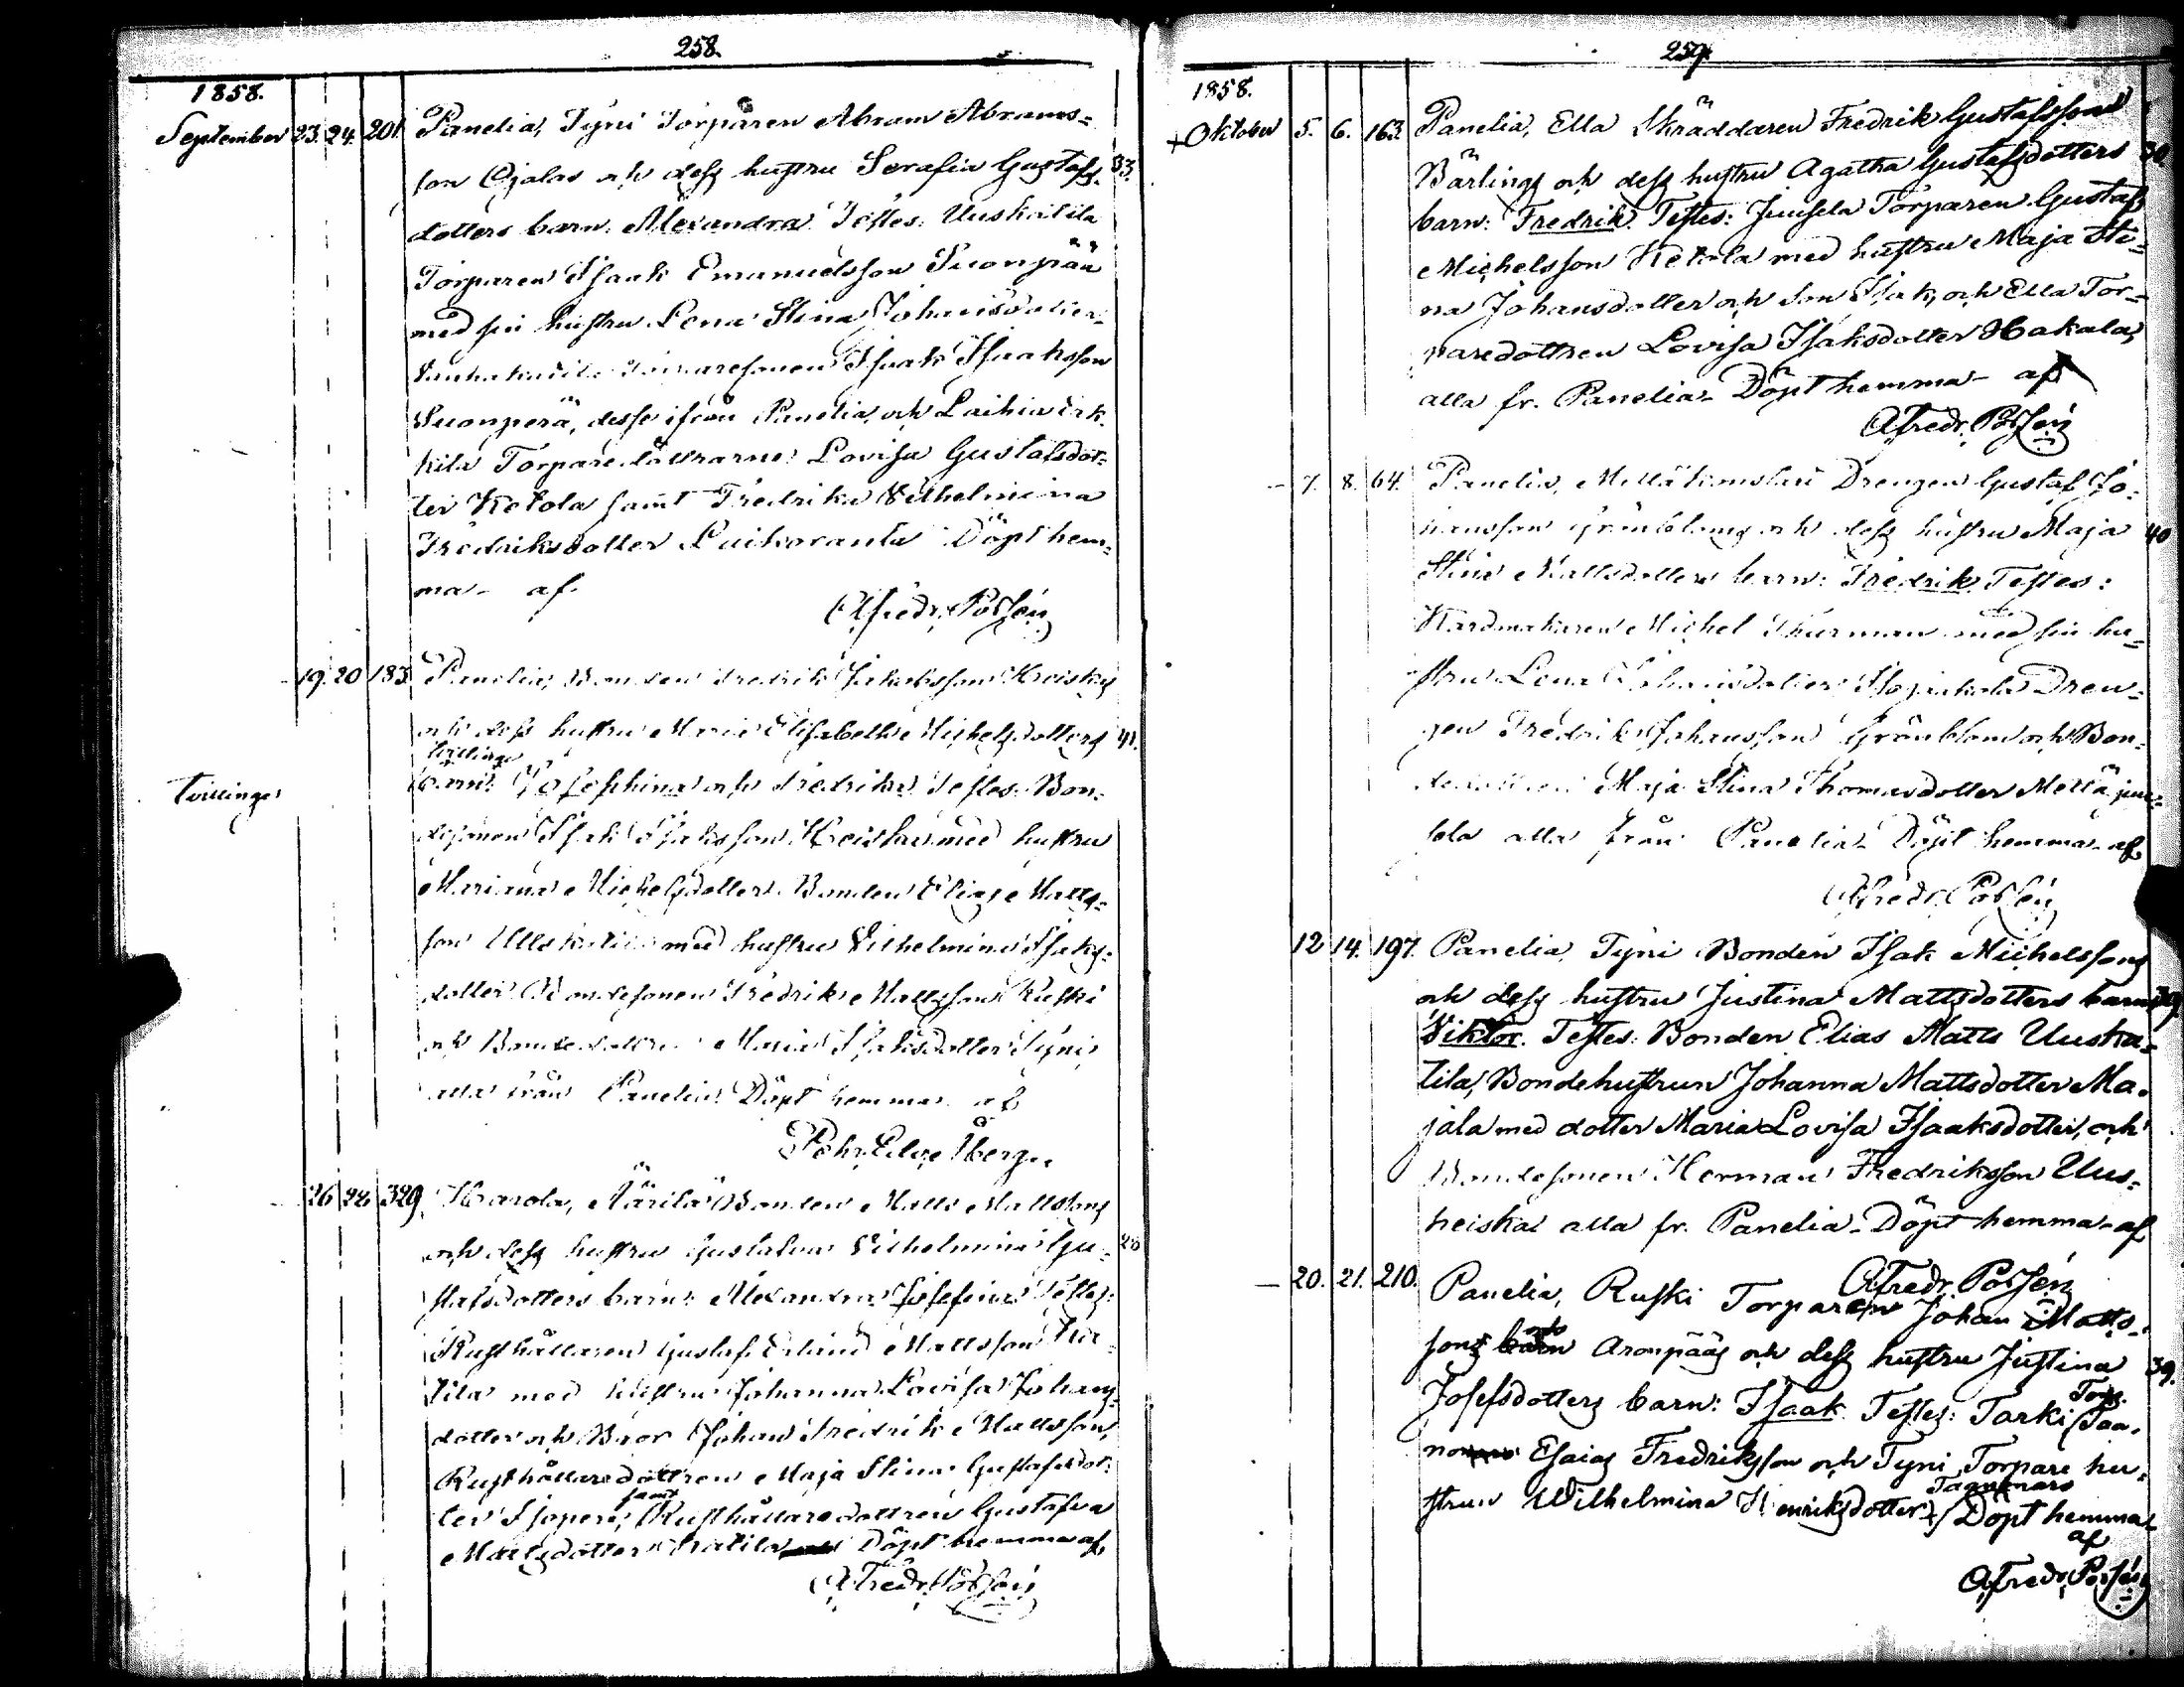 258.
1858.
September 23. 24. 201. Panelia, Tyni Torparen Abram Abrams=
son Ojalas och dess hustru Serafia Gustafs= 33.
dotters barn: Alexandra. Testes: Uuskatila
Torparen Isaak Emanuelsson Suonpää
med sin hustru Lena Stina Johansdotter
Isaak Isaaksson
Suonperä, desse ifrån Panelia, och Laihia
kila Torparedöttrarne: Lovisa Gustafsdot=
ter Ketola samt Fredrika Vilhelmina
Fredriksdotter Laikoranta Döpt hem=
ma - af
Alfredr. Porsén
19. 20 183. Panelia, Bonden Fredrik Jakobsson Heiskas
och dess hustru Maria Elisabeth Michelsdotters 41.
tvillinge
Tvillingar barn: Josephina och Fredrika Testes: Bon=
desonen Isak Isaksson Heiska med hustru
Mariana Michelsdotter. Bonden Elias Matts=
son med hustru Vilhelmina Isaks=
dotter. Bondesonen Fredrik Mattsson Ruski
och Bondedottren Maria Isaksdotter Tyni,
alla från Panelia. Döpt hemma af
berg.
26 28 329. Harola, Äärilä Bonden Matts Mattsons
och dess hustru Gustafva Vilhelmina Gu= 28
stafsdotters barn: Alexandra Josefina Testes:
Rusthållaren Gustaf Erland Mattsson
tila med hustru Johanna Lovisa Johans=
dotter och Bror Johan Fredrik Mattsson,
Rusthållaredottren Maja Stina Gustafsdot=
samt
ter Isoperi, Rusthållaredottren Gustafva
Mattsdotter Döpt hemma af
Alfredr. Porsén
259.
1858.
+ Oktober 5. 6. 163. Panelia, Ella Skräddaren Fredrik Gustafssons
Bärlings och dess hustru Agatha Gustafsdotters 30
barn: Fredrik. Testes: Juusela Torparen Gustaf
Michelsson Ketola med hustru Maja Sti=
na Johansdotter och son Isak, och Ella Tor=
paredottren Lovisa Isaksdotter Hakala,
alla fr. Panelia - Döpt hemma - af
Alfredr. Porsén
- 7. 8. 64. Panelia, Drengen Gustaf Jo=
hansson Grönbloms och dess hustru Maja 40
Stina Mattsdotters barn: Fredrik Testes:
Kardmakaren Michel Thurman med sin hu=
stru Lena Johansdotter Dren=
gen Fredrik Johansson Grönblom och Bon=
dedottren Maja Stina Thomasdotter Mellä juu=
sela alla från Panelia - Döpt hemma - af
Alfredr. Porsén
12 14. 197. Panelia Tyni Bonden Isak Michelssons
och dess hustru Justina Mattsdotters barn
Viktor. Testes: Bonden Elias Matts Uuska=
tila, Bondehustrun Johanna Mattsdotter Ma=
jala med dotter Maria Lovisa Isaaksdotter, och
Bondesonen Herman Fredriksson Uus=
heiska alla fr. Panelia - Döpt hemma - af
Alfredr. Porsén
- 20. 21. 210. Panelia, Ruski Torparen Johan Matts=
sons Aronpääs och dess hustru Justina 39.
Josefsdotters barn: Isaak Testes: Tarki Torp. Taa=
Esaias Fredriksson och Tyni Torpare hu=
strun Wilhelmina Henriksdotter Döpt hemma
af
Alfredr. Porsén